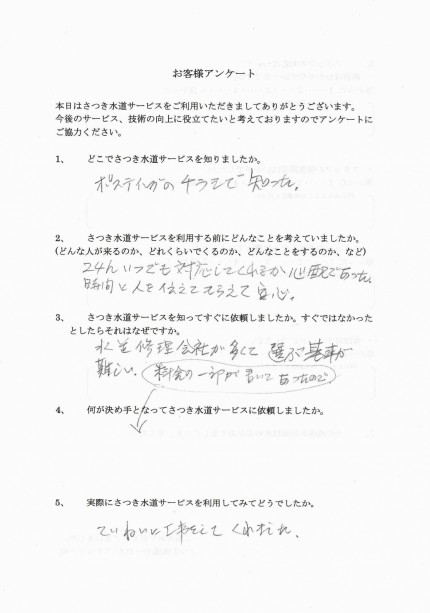 お客様アンケート
本日はさつき水道サービスをご利用いただきましてありがとうございます。
今後のサービス、技術の向上に役立てたいと考えておりますのでアンケートに
ご協力ください。
1、 どこでさつき水道サービスを知りましたか。
ポスティングのチラシで知った。
2、 さつき水道サービスを利用する前にどんなことを考えていましたか。
(どんな人が来るのか、どれくらいでくるのか、どんなことをするのか、など)
24hいつでも対応してくれるか心配であった
時間と人を伝えてもらえて安心。
3、 さつき水道サービスを知ってすぐに依頼しましたか。すぐではなかった
としたらそれはなぜですか。
水道修理会社が多くて選ぶ基準が
難しい。料金の一部が書いてあったので
4、 何が決め手となってさつき水道サービスに依頼しましたか。
5、 実際にさつき水道サービスを利用してみてどうでしたか。
ていねいに工事をしてくれました。